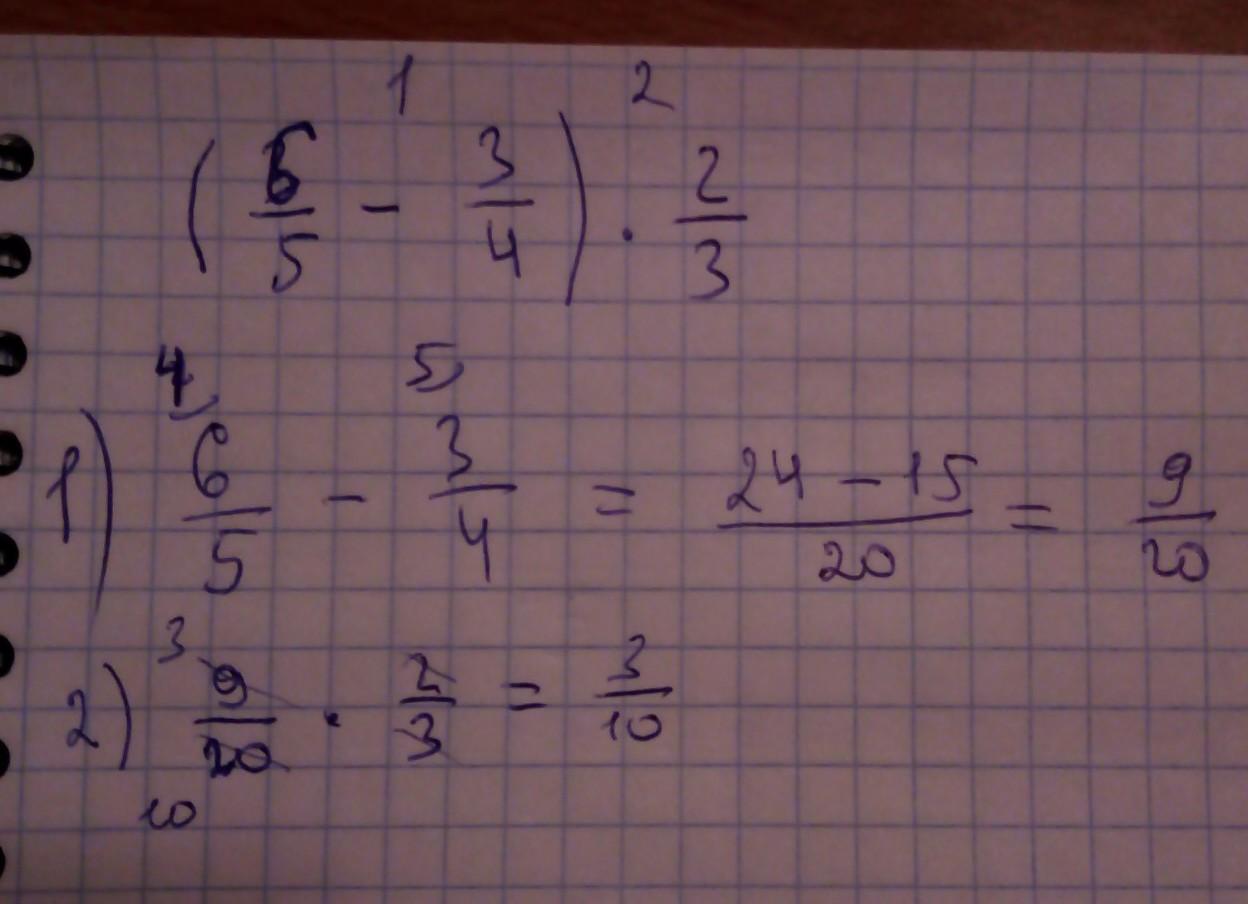 1 2
(6/5 - 3/4) · 2/3
4) 5)
1) 6/5 - 3/4 = (24 - 15)/20 = 9/20
3
2) 9/20 · 2/3 = 3/10
10